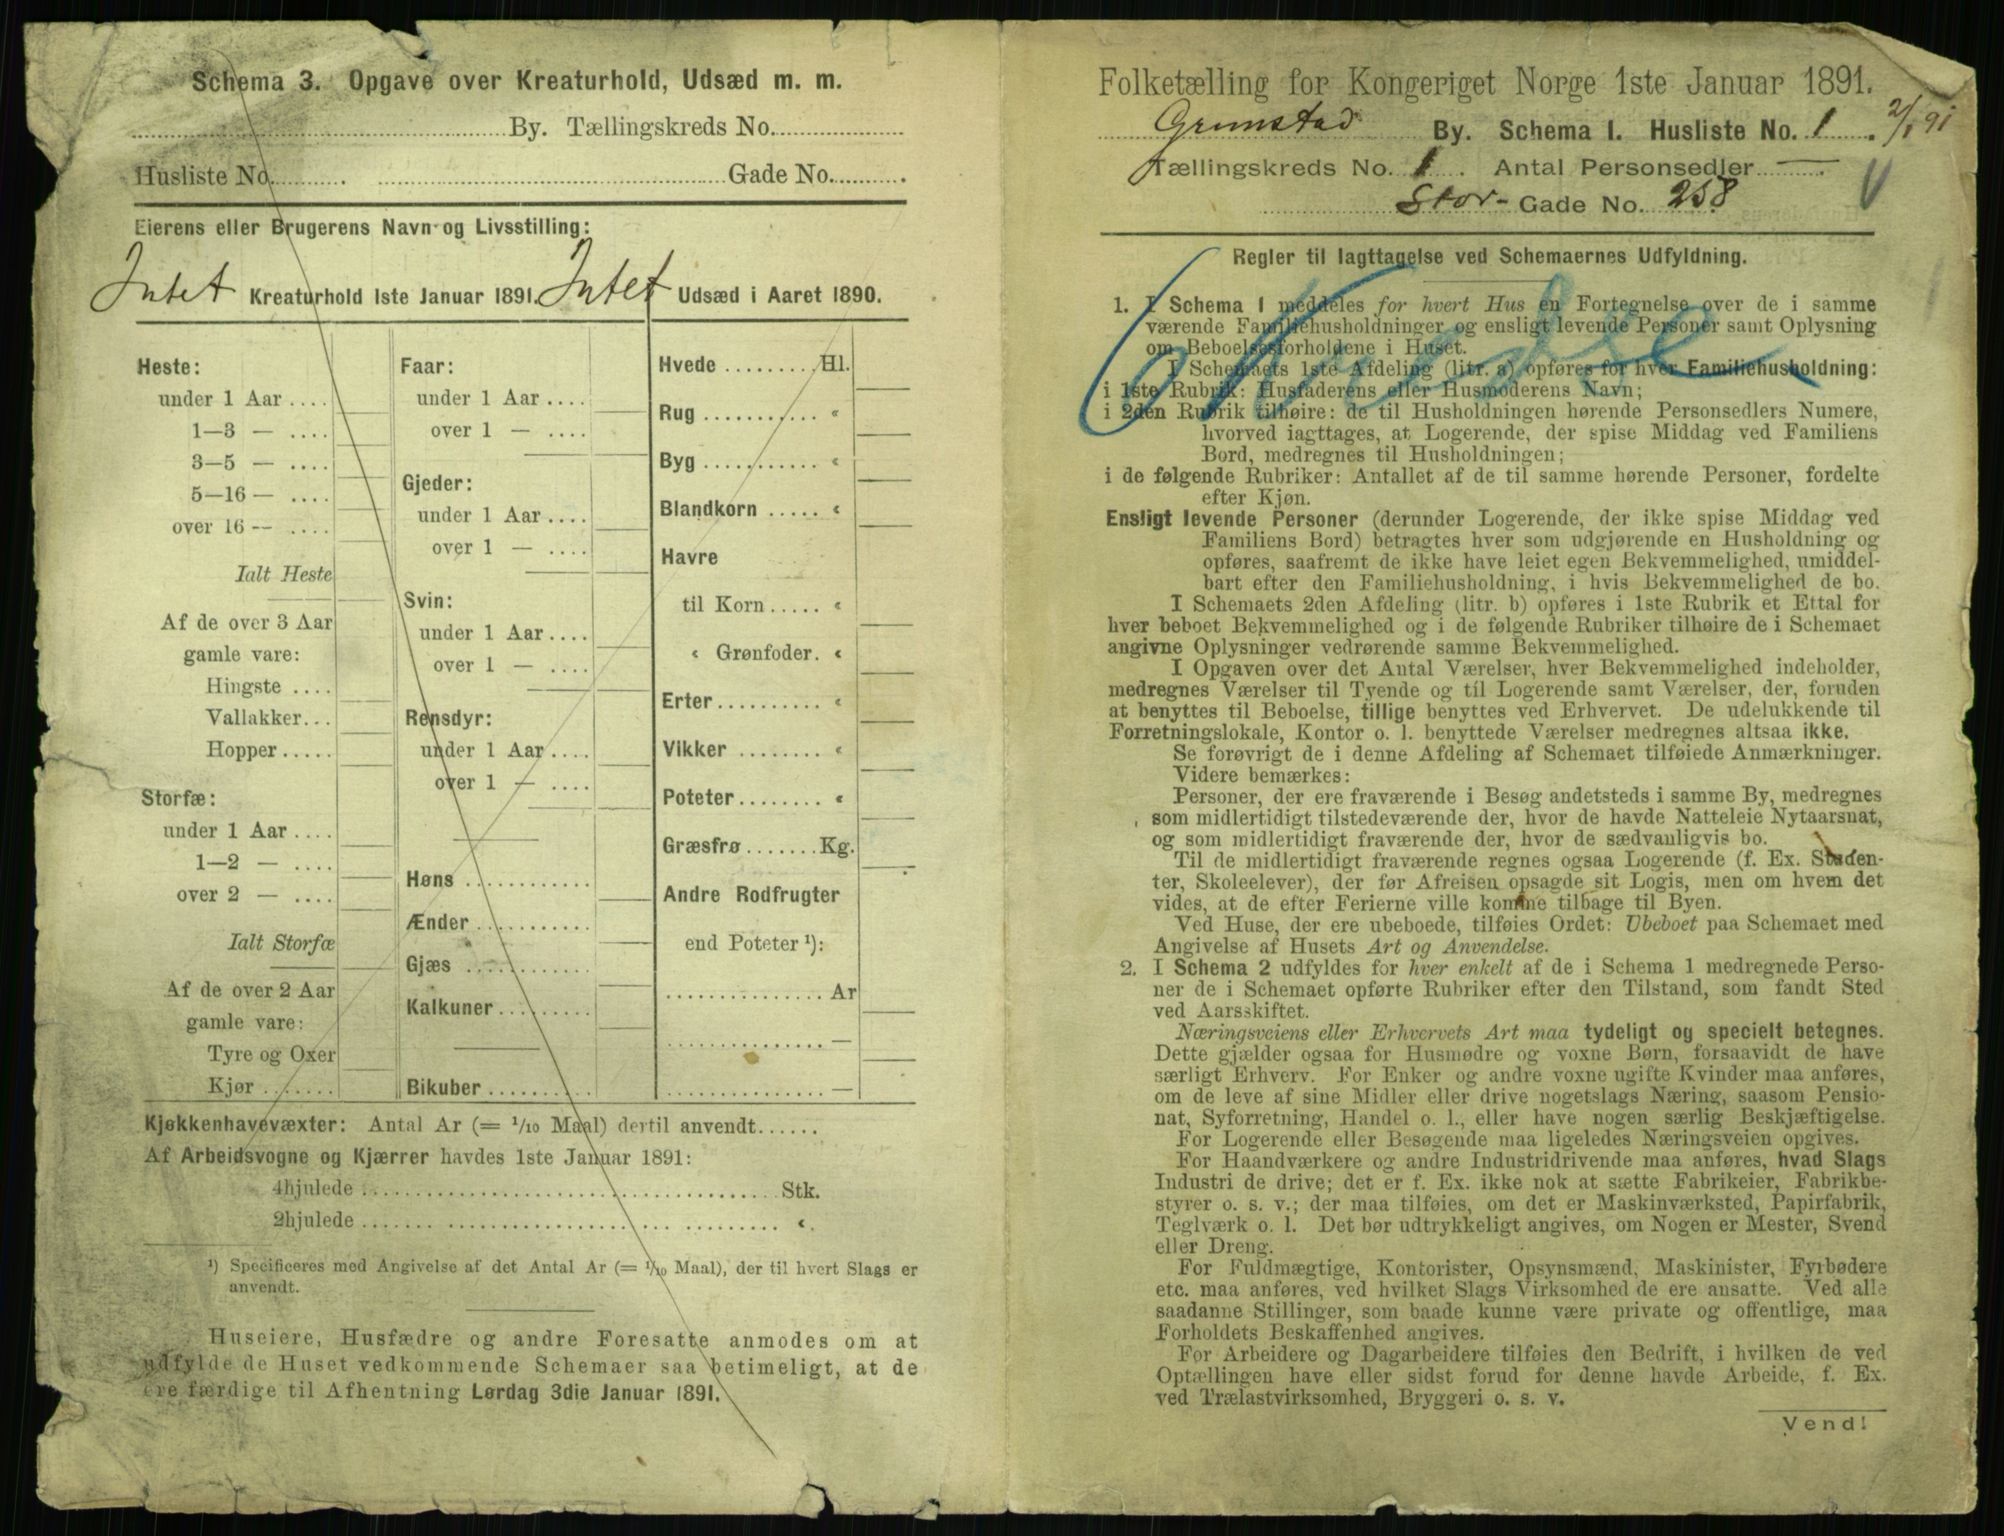 Schema 3. Opgave over Kreaturhold, Udsæd m. m.
By. Tællingskreds No.
Husliste No. Gade No.
Eierens eller Brugerens Navn og Livsstilling:
Intet Kreaturhold 1ste Januar 1891. Intet Udsæd i Aaret 1890.
Heste:
under 1 Aar ....
1—3 — ....
3—5 — ....
5—16 — ....
over 16 — ....
Ialt Heste
Af de over 3 Aar
gamle vare:
Hingste ....
Vallakker...
Hopper .....
Storfæ:
under 1 Aar ....
1—2 — ....
over 2 — ....
Ialt Storfæ
Af de over 2 Aar
gamle vare:
Tyre og Oxer
Kjør .......
Faar:
under 1 Aar ....
over 1 — ....
Gjeder:
under 1 Aar ....
over 1 — ....
Svin:
under 1 Aar ....
over 1 — ....
Rensdyr:
under 1 Aar ....
over 1 — ....
Høns ............
Ænder ...........
Gjæs ............
Kalkuner .........
Bikuber ..........
Hvede ......... Hl.
Rug ........... «
Byg ........... «
Blandkorn ..... «
Havre
til Korn ..... «
« Grønfoder. «
Erter .......... «
Vikker ......... «
Poteter ........ «
Græsfrø ....... Kg.
Andre Rodfrugter
end Poteter ¹):
............... Ar
............... —
............... —
Kjøkkenhavevæxter: Antal Ar (= 1/10 Maal) dertil anvendt......
Af Arbeidsvogne og Kjærrer havdes 1ste Januar 1891:
4hjulede ........ Stk.
2hjulede ........ «.
¹) Specificeres med Angivelse af det Antal Ar (= 1/10 Maal), der til hvert Slags er
anvendt.
Huseiere, Husfædre og andre Foresatte anmodes om at
udfylde de Huset vedkommende Schemaer saa betimeligt, at de
ere færdige til Afhentning Lørdag 3die Januar 1891.
Folketælling for Kongeriget Norge 1ste Januar 1891.
Grimstad By. Schema I. Husliste No. 1. 2/1 91
Tællingskreds No. 1. Antal Personsedler —
Stor- Gade No. 258
Regler til Iagttagelse ved Schemaernes Udfyldning.
1. I Schema 1 meddeles for hvert Hus en Fortegnelse over de i samme
værende Familiehusholdninger og ensligt levende Personer samt Oplysning
om Beboelsesforholdene i Huset.
I Schemaets 1ste Afdeling (litr. a) opføres for hver Familiehusholdning:
i 1ste Rubrik: Husfaderens eller Husmoderens Navn;
i 2den Rubrik tilhøire: de til Husholdningen hørende Personsedlers Numere,
hvorved iagttages, at Logerende, der spise Middag ved Familiens
Bord, medregnes til Husholdningen;
i de følgende Rubriker: Antallet af de til samme hørende Personer, fordelte
efter Kjøn.
Ensligt levende Personer (derunder Logerende, der ikke spise Middag ved
Familiens Bord) betragtes hver som udgjørende en Husholdning og
opføres, saafremt de ikke have leiet egen Bekvemmelighed, umiddel-
bart efter den Familiehusholdning, i hvis Bekvemmelighed de bo.
I Schemaets 2den Afdeling (litr. b) opføres i 1ste Rubrik et Ettal for
hver beboet Bekvemmelighed og i de følgende Rubriker tilhøire de i Schemaet
angivne Oplysninger vedrørende samme Bekvemmelighed.
I Opgaven over det Antal Værelser, hver Bekvemmelighed indeholder,
medregnes Værelser til Tyende og til Logerende samt Værelser, der, foruden
at benyttes til Beboelse, tillige benyttes ved Erhvervet. De udelukkende til
Forretningslokale, Kontor o. l. benyttede Værelser medregnes altsaa ikke.
Se forøvrigt de i denne Afdeling af Schemaet tilføiede Anmærkninger.
Videre bemærkes:
Personer, der ere fraværende i Besøg andetsteds i samme By, medregnes
som midlertidigt tilstedeværende der, hvor de havde Natteleie Nytaarsnat,
og som midlertidigt fraværende der, hvor de sædvanligvis bo.
Til de midlertidigt fraværende regnes ogsaa Logerende (f. Ex. Studen-
ter, Skoleelever), der før Afreisen opsagde sit Logis, men om hvem det
vides, at de efter Ferierne ville komme tilbage til Byen.
Ved Huse, der ere ubeboede, tilføies Ordet: Ubeboet paa Schemaet med
Angivelse af Husets Art og Anvendelse.
2. I Schema 2 udfyldes for hver enkelt af de i Schema 1 medregnede Perso-
ner de i Schemaet opførte Rubriker efter den Tilstand, som fandt Sted
ved Aarsskiftet.
Næringsveiens eller Erhvervets Art maa tydeligt og specielt betegnes.
Dette gjælder ogsaa for Husmødre og voxne Børn, forsaavidt de have
særligt Erhverv. For Enker og andre voxne ugifte Kvinder maa anføres,
om de leve af sine Midler eller drive nogetslags Næring, saasom Pensio-
nat, Syforretning, Handel o. l., eller have nogen særlig Beskjæftigelse.
For Logerende eller Besøgende maa ligeledes Næringsveien opgives.
For Haandværkere og andre Industridrivende maa anføres, hvad Slags
Industri de drive; det er f. Ex. ikke nok at sætte Fabrikeier, Fabrikbe-
styrer o. s. v.; der maa tilføies, om det er Maskinværksted, Papirfabrik,
Teglværk o. l. Det bør udtrykkeligt angives, om Nogen er Mester, Svend
eller Dreng.
For Fuldmægtige, Kontorister, Opsynsmænd, Maskinister, Fyrbødere
etc. maa anføres, ved hvilket Slags Virksomhed de ere ansatte. Ved alle
saadanne Stillinger, som baade kunne være private og offentlige, maa
Forholdets Beskaffenhed angives.
For Arbeidere og Dagarbeidere tilføies den Bedrift, i hvilken de ved
Optællingen have eller sidst forud for denne havde Arbeide, f. Ex.
ved Trælastvirksomhed, Bryggeri o. s. v.
Vend!